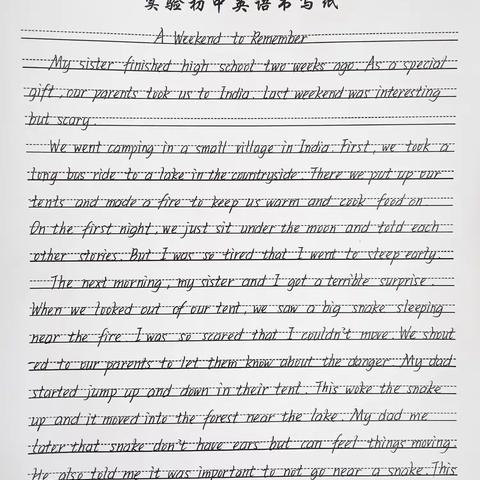 实验初中英语书写纸
A Weekend to Remember
My sister finished high school two weeks ago. As a special
gift, our parents took us to India. Last weekend was interesting
but scary.
We went camping in a small village in India. First, we took a
long bus ride to a lake in the countryside. There we put up our
tents and made a fire to keep us warm and cook food on
On the first night, we just sit under the moon and told each
other stories. But I was so tired that I went to sleep early.
The next morning, my sister and I got a terrible surprise.
When we looked out of our tent, we saw a big snake sleeping
near the fire. I was so scared that I couldn't move. We shout
-ed to our parents to let them know about the danger. My dad
started jump up and down in their tent. This woke the snake
up and it moved into the forest near the lake. My dad me
later that snake don't have ears but can feel things moving.
He also told me it was important to not go near a snake. This